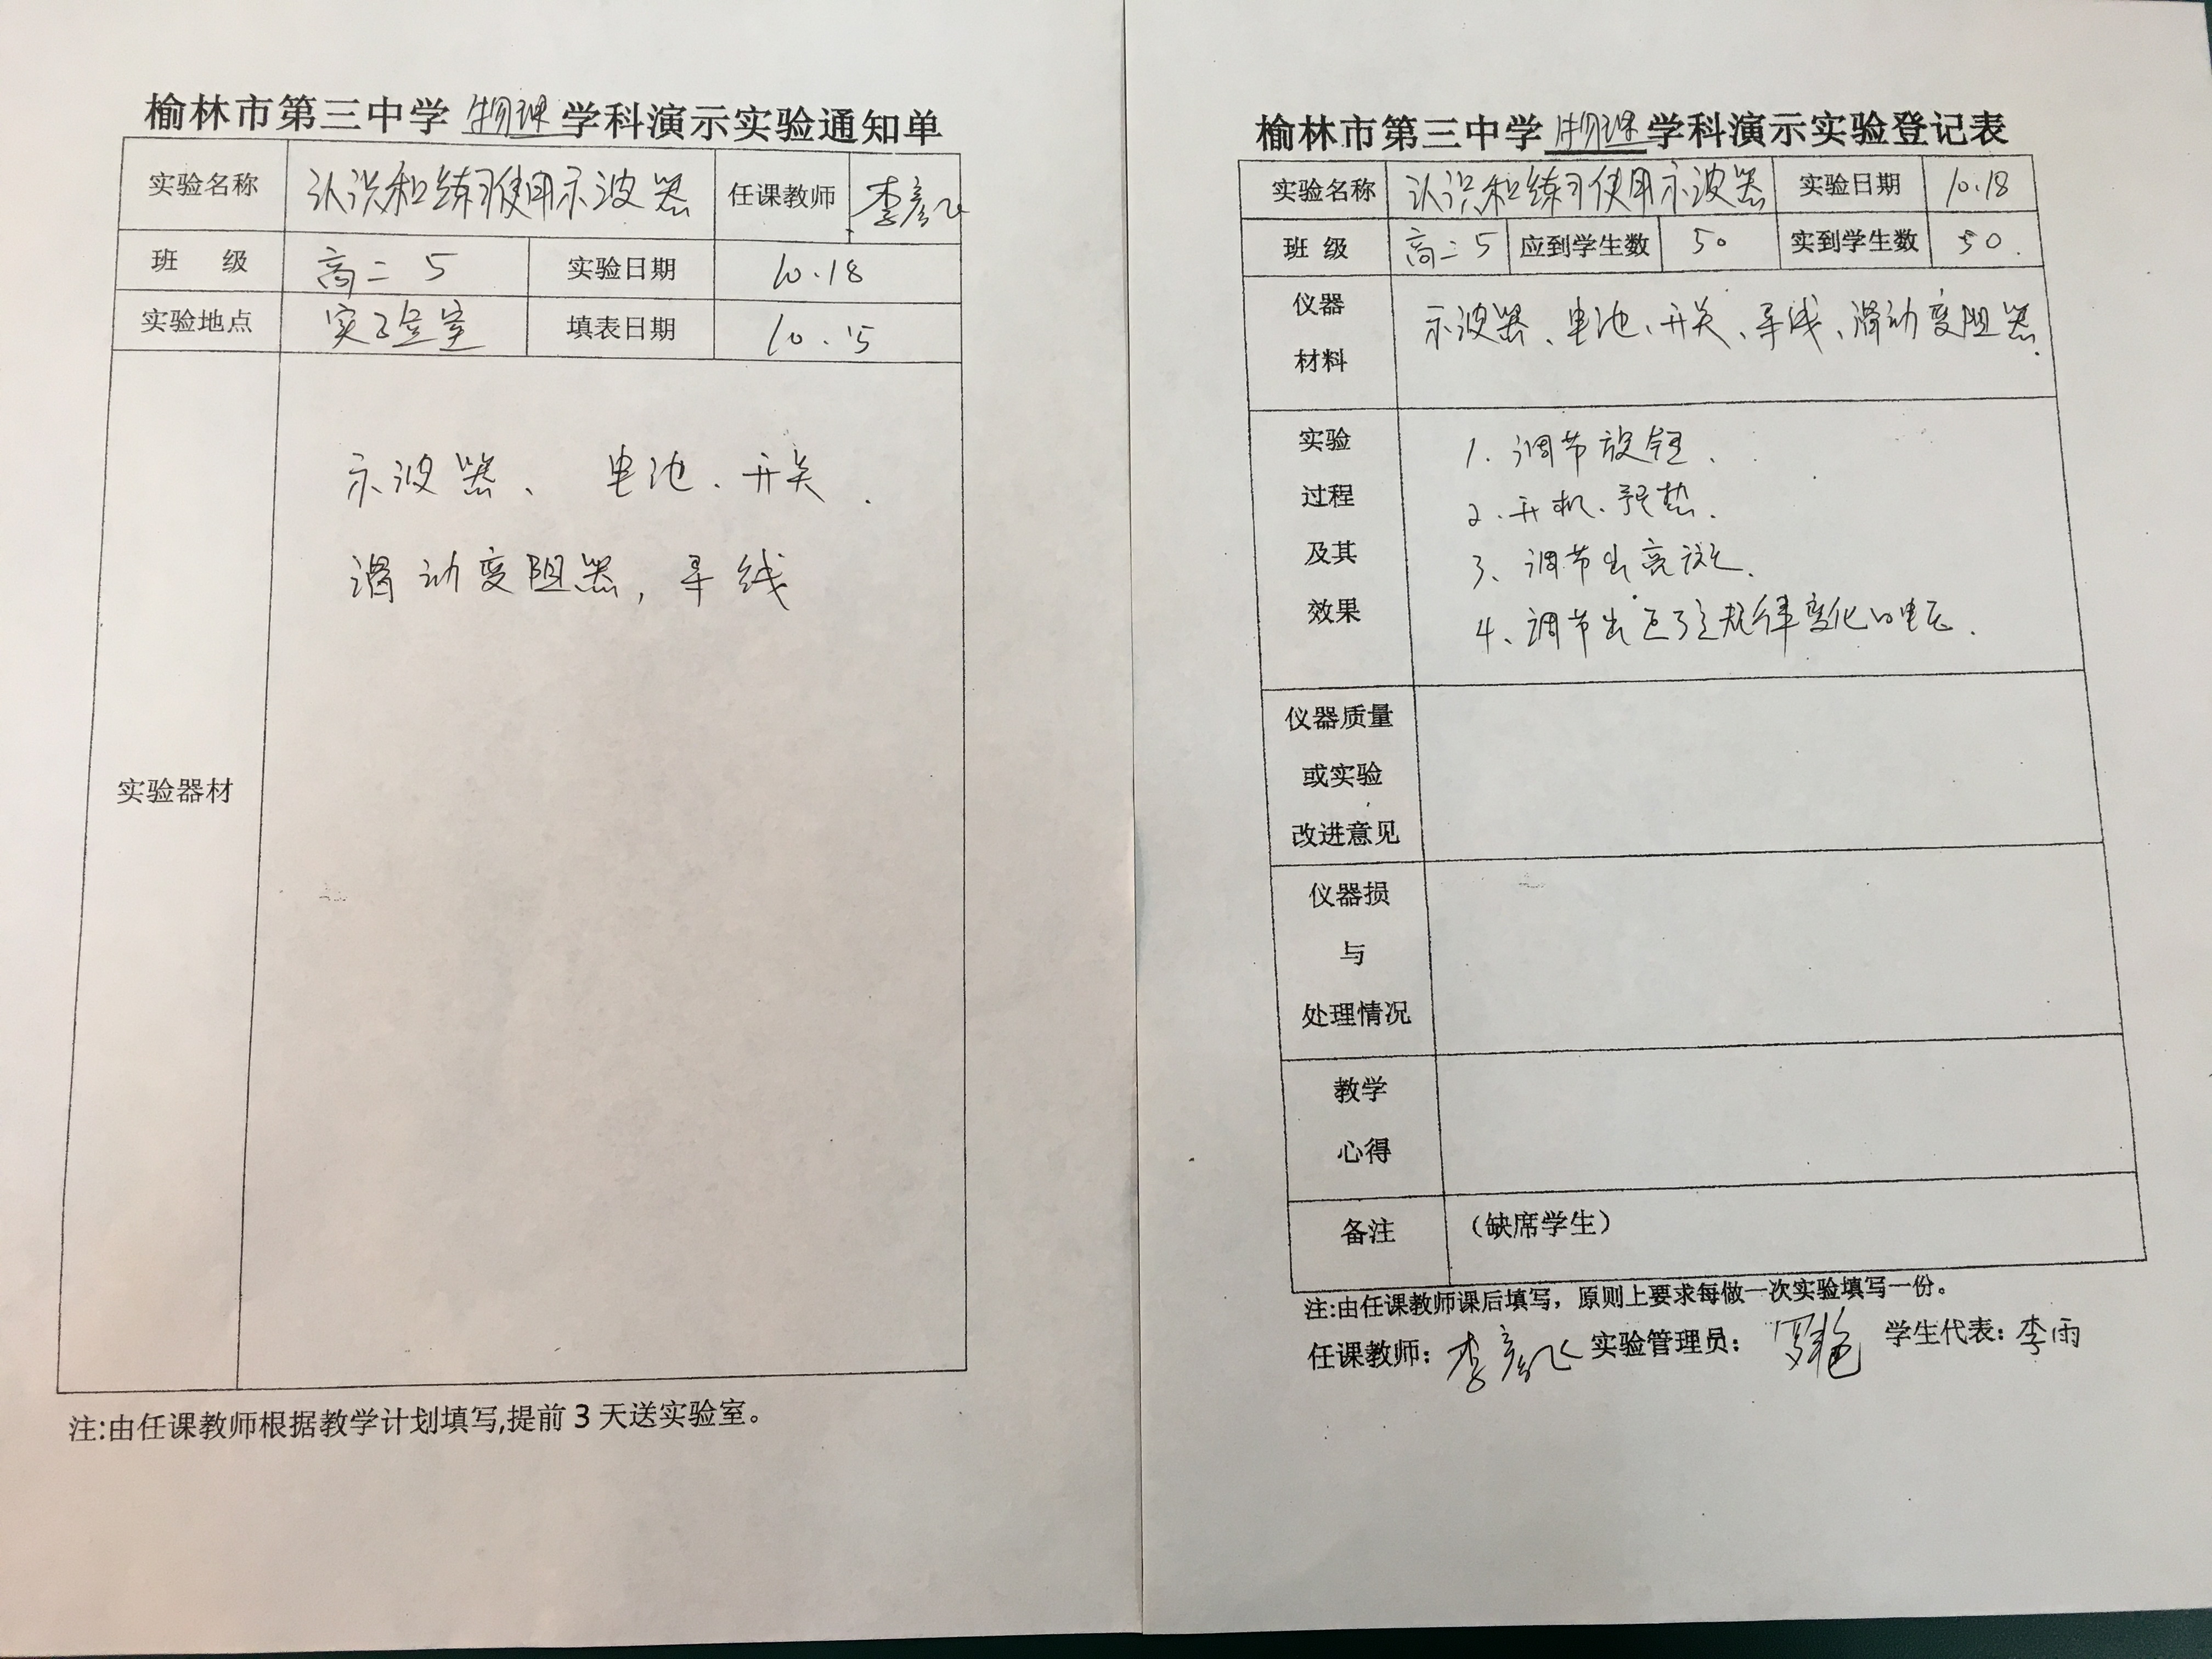 榆林市第三中学 物理 学科演示实验通知单
实验名称 认识和练习使用示波器 任课教师 李彦飞
班 级 高二 5 实验日期 10.18
实验地点 实验室 填表日期 10.15
实验器材
示波器、 电池、开关、
滑动变阻器, 导线
注:由任课教师根据教学计划填写,提前 3 天送实验室。
榆林市第三中学 物理 学科演示实验登记表
实验名称 认识和练习使用示波器 实验日期 10.18
班 级 高二 5 应到学生数 50 实到学生数 50.
仪器
材料
示波器、电池、开关、导线、滑动变阻器.
实验
过程
及其
效果
1. 调节旋钮.
2. 开机、预热.
3、调节出亮斑.
4、调节出正弦规律变化的电压.
仪器质量
或实验
改进意见
仪器损
与
处理情况
教学
心得
备注 （缺席学生）
注:由任课教师课后填写，原则上要求每做一次实验填写一份。
任课教师: 李彦飞 实验管理员: 罗艳 学生代表: 李雨